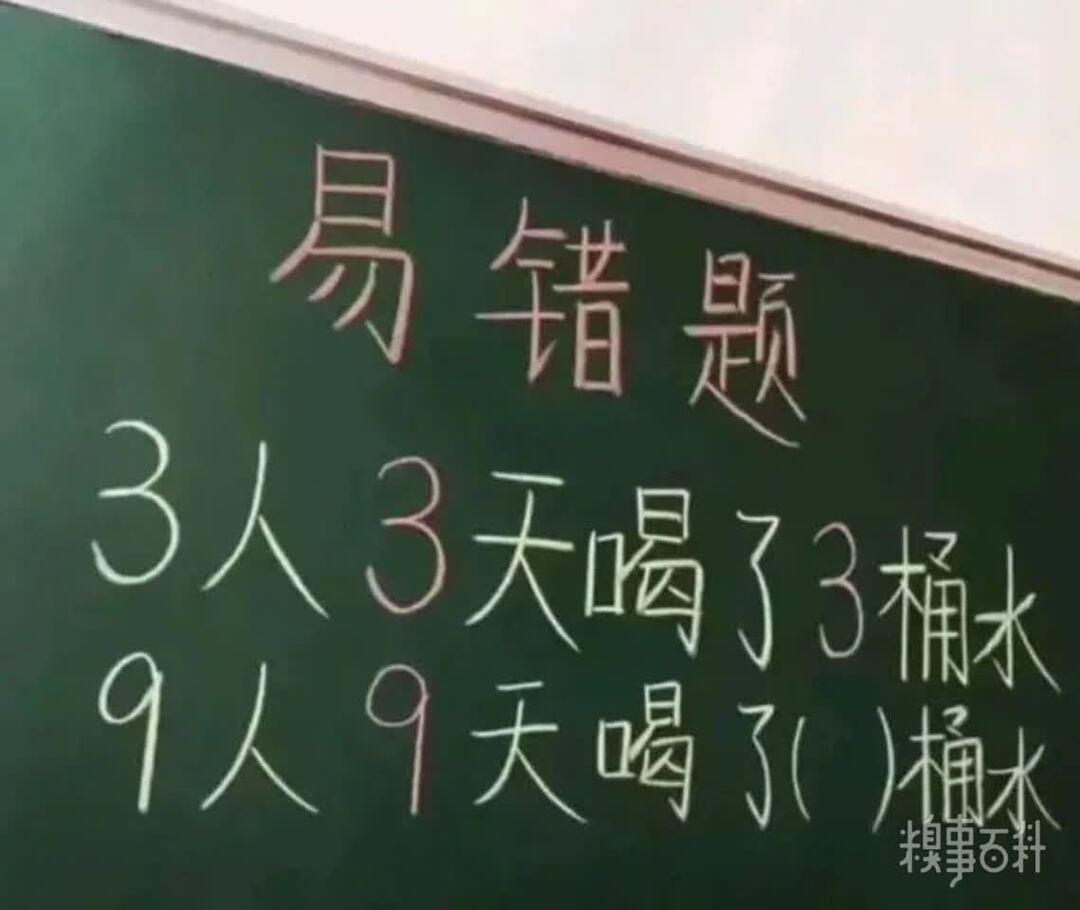 易错题
3人3天喝了3桶水
9人9天喝了( )桶水
糗事百科